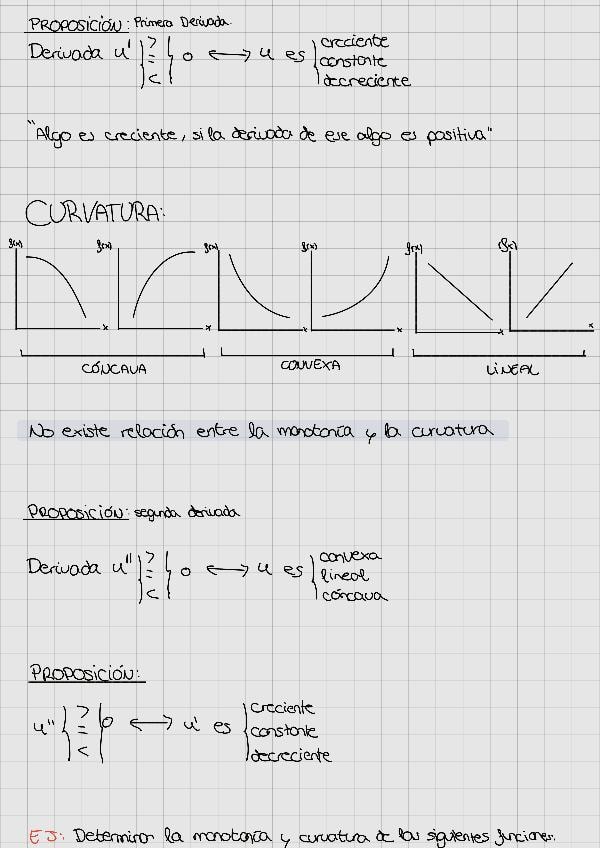 PROPOSICIÓN: Primera Derivada.
Derivada u' } > = < } 0 ⟷ u es } creciente
constante
decreciente
"Algo es creciente, si la derivada de ese algo es positiva"
CURVATURA:
f(x) f(x) f(x) f(x) f(x) f(x)
x x x x x x
CÓNCAVA CONVEXA LINEAL
No existe relación entre la monotonía y la curvatura
PROPOSICIÓN: segunda derivada
Derivada u'' } > = < } 0 ⟷ u es } convexa
lineal
cóncava
PROPOSICIÓN:
u'' } > = < } 0 ⟷ u' es } creciente
constante
decreciente
EJ: Determinar la monotonía y curvatura de las siguientes funciones.